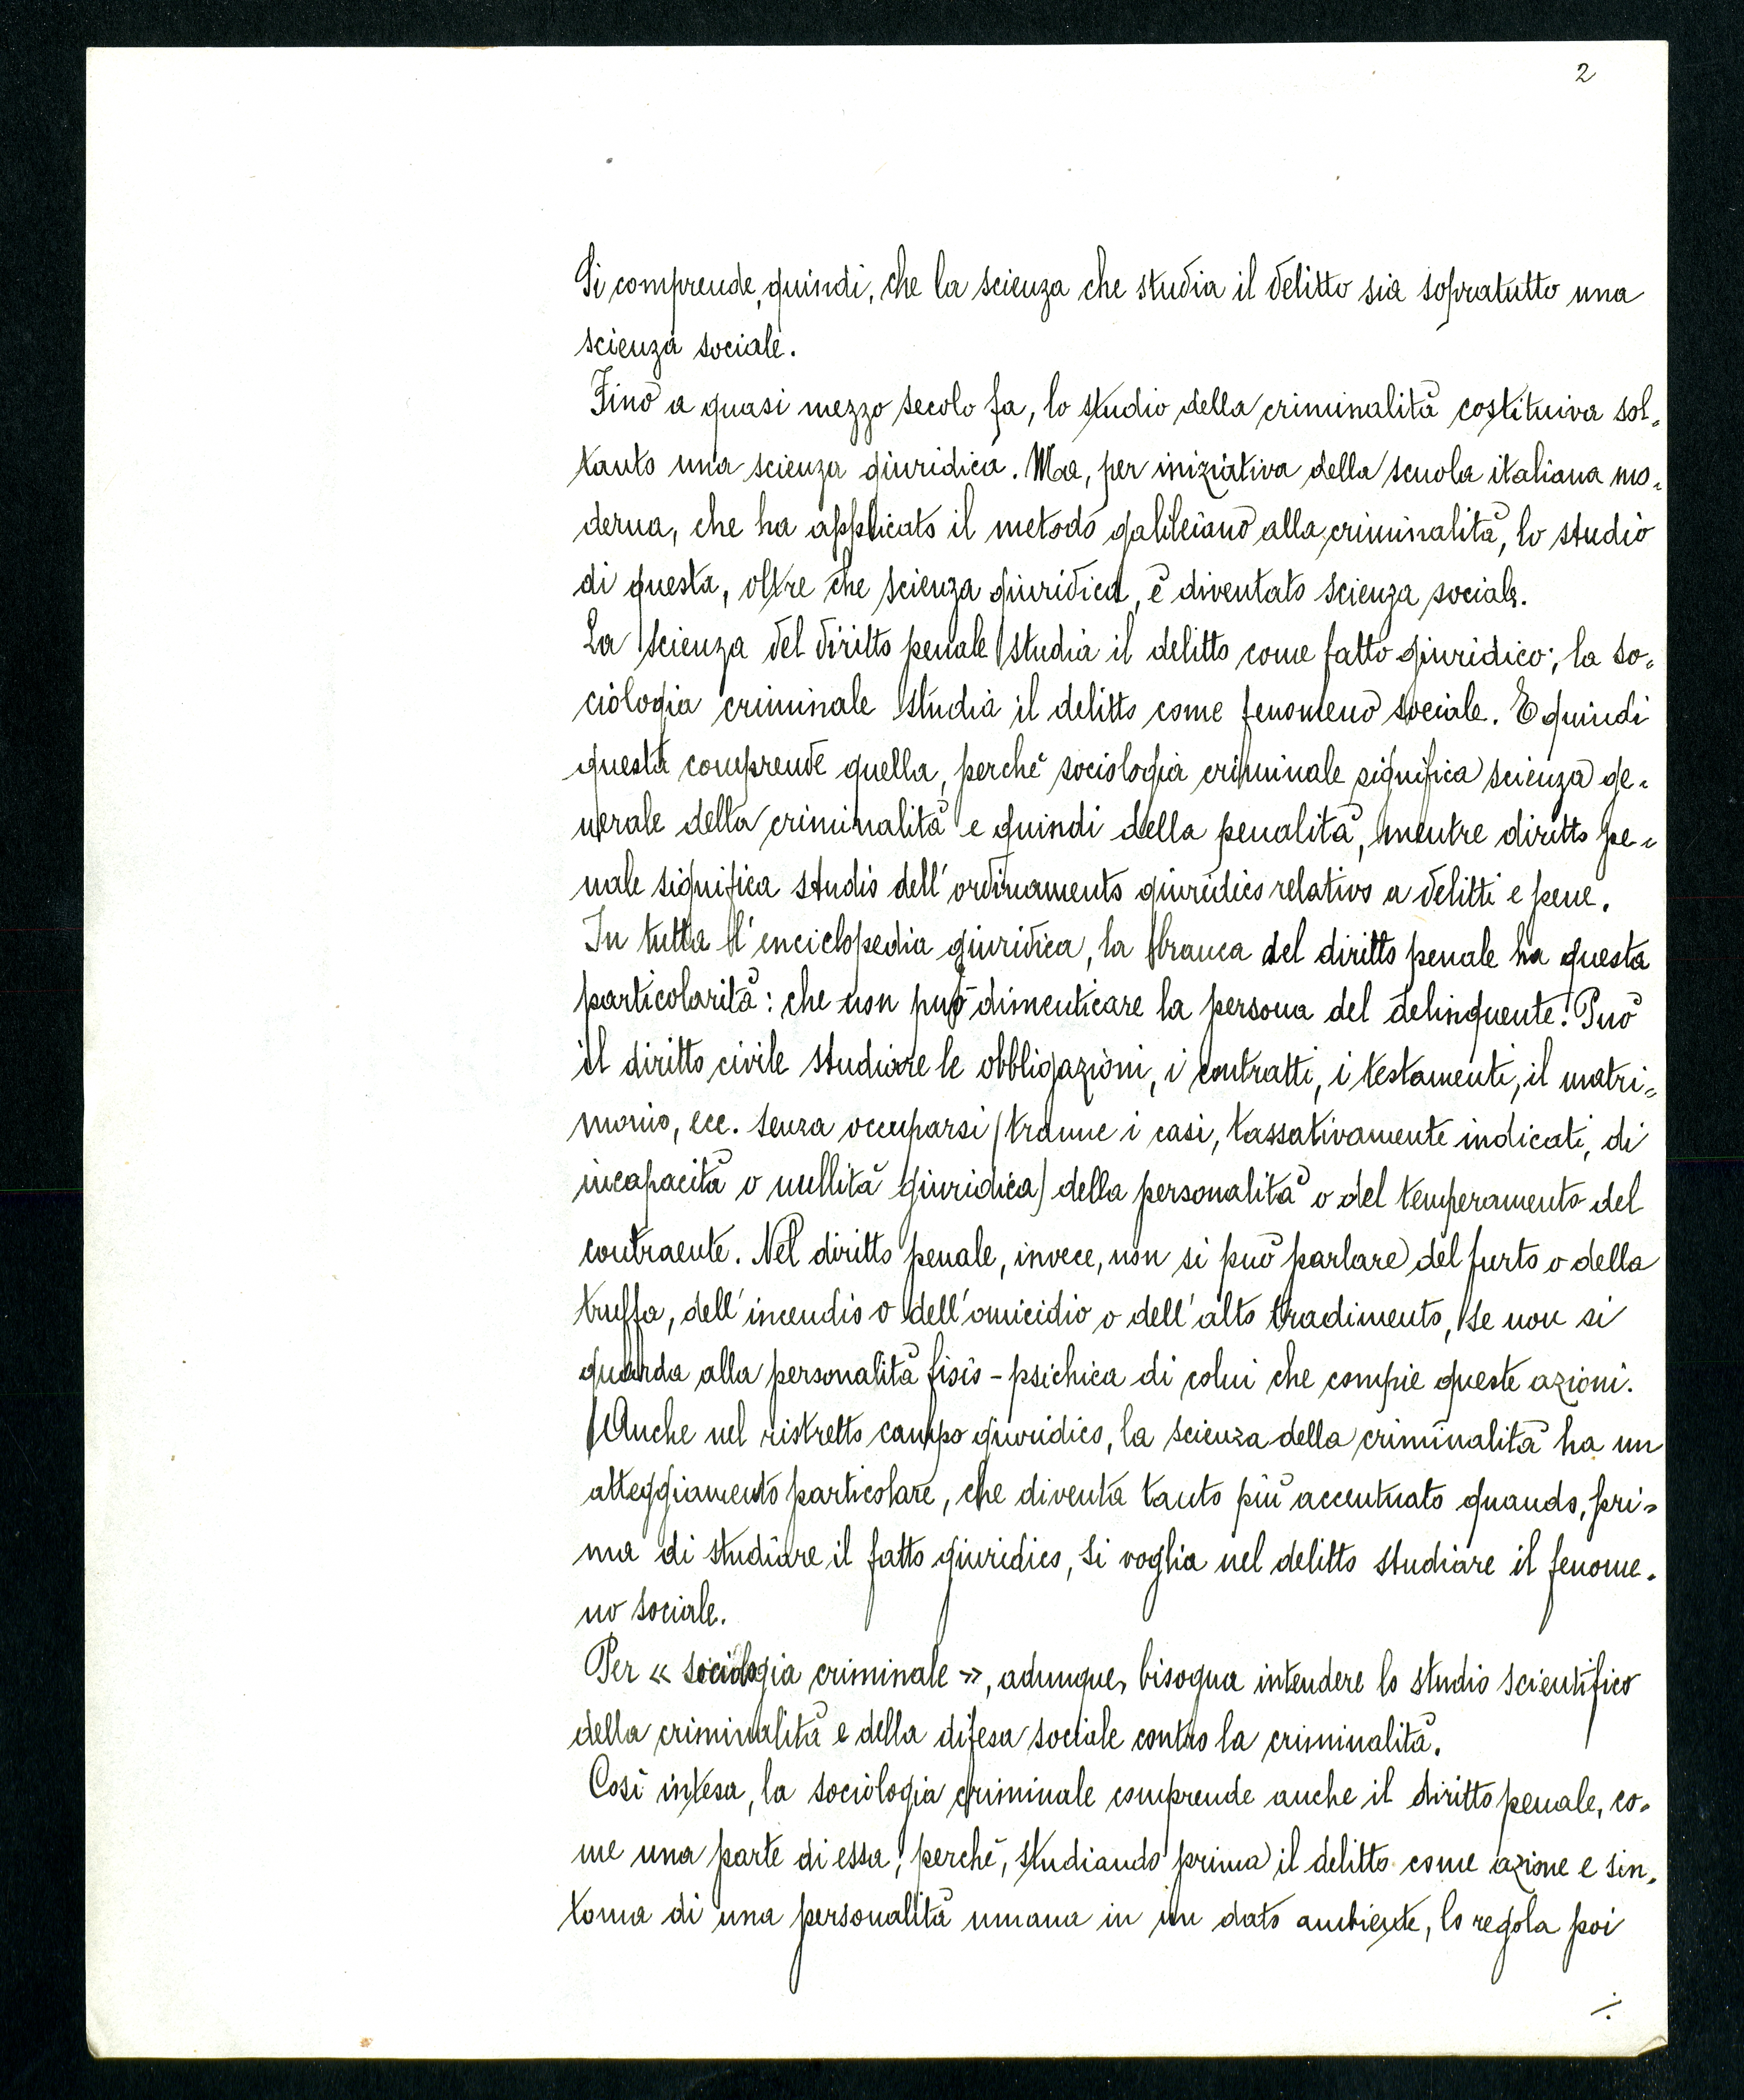 2
Si comprende, quindi, che la scienza che studia il delitto sia sopratutto una
scienza sociale.
Fino a quasi mezzo secolo fa, lo studio della criminalità costituiva sol-
tanto una scienza giuridica. Ma, per iniziativa della scuola italiana mo-
derna, che ha applicato il metodo galileiano alla criminalità, lo studio
di questa, oltre che scienza giuridica, è diventato scienza sociale.
La scienza del diritto penale studia il delitto come fatto giuridico; la so-
ciologia criminale studia il delitto come fenomeno sociale. E quindi
questa comprende quella, perchè sociologia criminale significa scienza ge-
nerale della criminalità e quindi della penalità, mentre diritto pe-
nale significa studio dell'ordinamento giuridico relativo a delitti e pene.
In tutta l'enciclopedia giuridica, la branca del diritto penale ha questa
particolarità: che non può dimenticare la persona del delinquente. Può
il diritto civile studiare le obbligazioni, i contratti, i testamenti, il matri-
monio, ecc. senza occuparsi (tranne i casi, tassativamente indicati, di
incapacità o nullità giuridica) della personalità o del temperamento del
contraente. Nel diritto penale, invece, non si può parlare del furto o della
truffa, dell'incendio o dell'omicidio o dell'alto tradimento, se non si
guarda alla personalità fisio-psichica di colui che compie queste azioni.
Anche nel ristretto campo giuridico, la scienza della criminalità ha un
atteggiamento particolare, che diventa tanto più accentuato quando, pri-
ma di studiare il fatto giuridico, si voglia nel delitto studiare il fenome-
no sociale.
Per « sociologia criminale », adunque, bisogna intendere lo studio scientifico
della criminalità e della difesa sociale contro la criminalità.
Così intesa, la sociologia criminale comprende anche il diritto penale, co-
me una parte di essa, perchè, studiando prima il delitto come azione e sin-
toma di una personalità umana in un dato ambiente, lo regola poi
./.